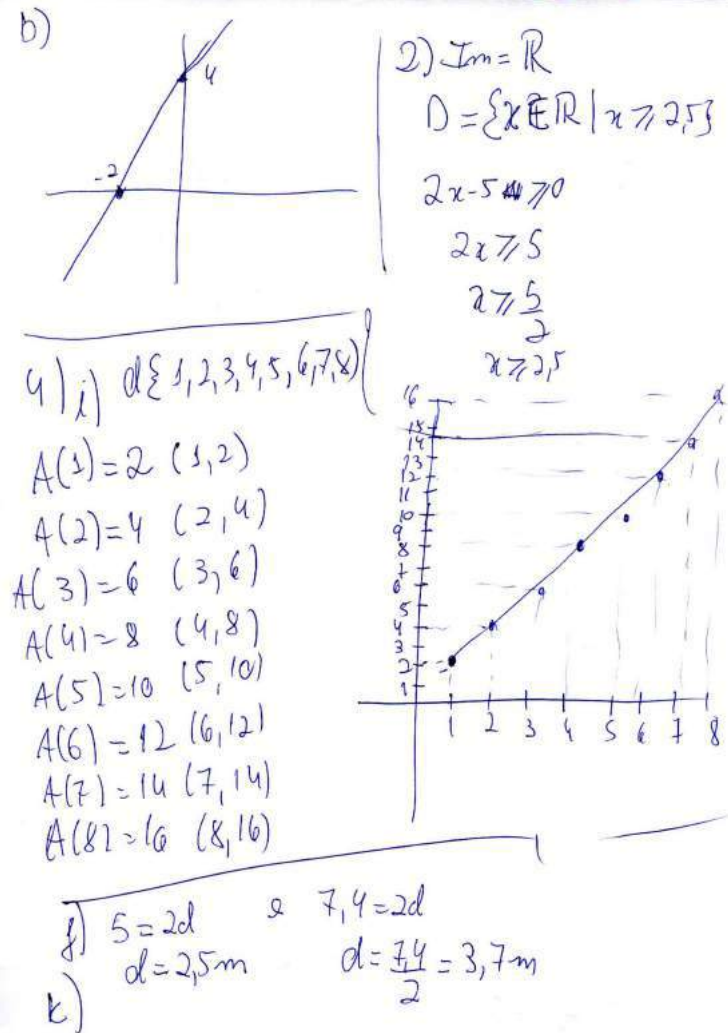 b)
4
-2
2) Im = ℝ
D = {x ∈ ℝ | x ≥ 2,5}
2x-5 ≥ 0
2x ≥ 5
x ≥ 5/2
x ≥ 2,5
4) i) d{1,2,3,4,5,6,7,8}
A(1)=2 (1,2)
A(2)=4 (2,4)
A(3)=6 (3,6)
A(4)=8 (4,8)
A(5)=10 (5,10)
A(6)=12 (6,12)
A(7)=14 (7,14)
A(8)=16 (8,16)
16
15
14
13
12
11
10
9
8
7
6
5
4
3
2
1
1 2 3 4 5 6 7 8
j) 5=2d e 7,4=2d
d=2,5m d=7,4/2=3,7m
k)